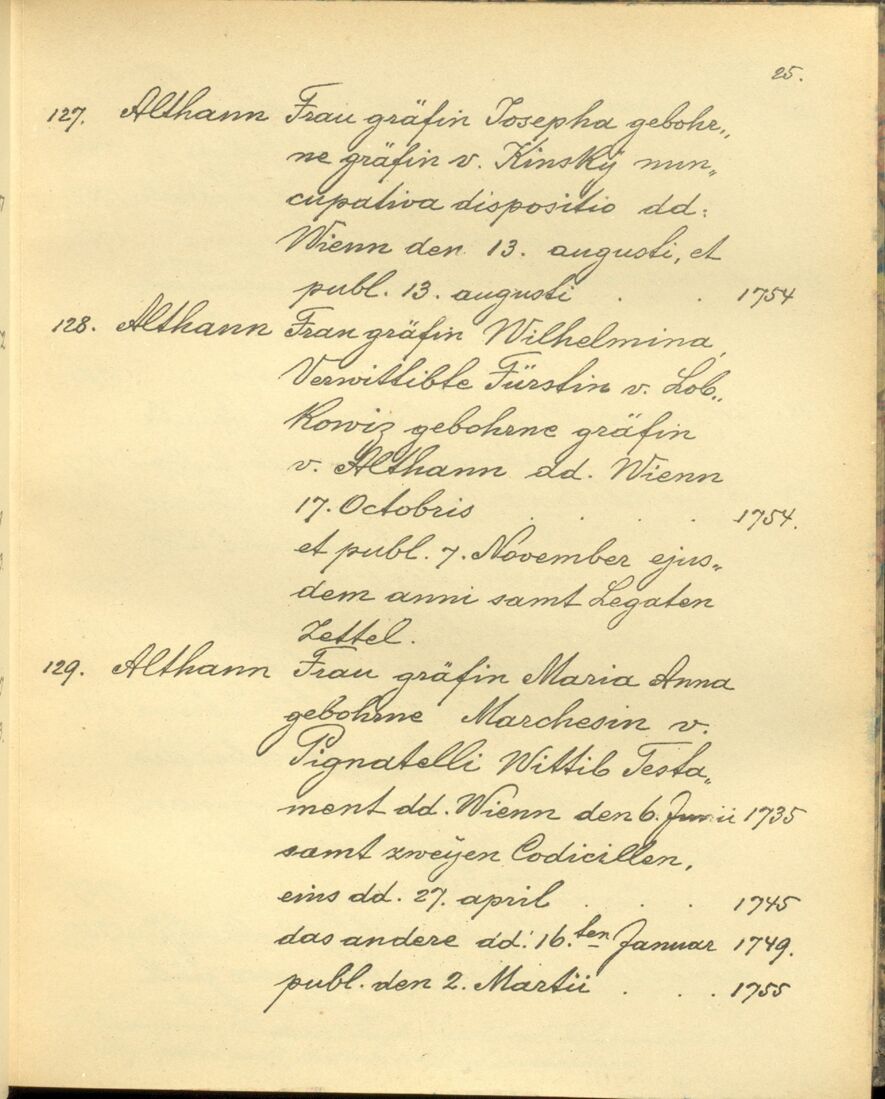 25.
127. Althann Frau gräfin Josepha gebohr„
ne gräfin v. Kinskÿ nun„
cupativa dispositio dd:
Wienn den 13. augusti, et
publ. 13. augusti . . 1754
128. Althann Frau gräfin Wilhelmina,
Verwittibte Fürstin v. Lob„
kowiz gebohrne gräfin
v. Althann dd. Wienn
17. Octobris . . . . 1754.
et publ. 7. November ejus„
dem anni samt Legaten
Zettel.
129. Althann Frau gräfin Maria Anna
gebohrne Marchesin v.
Pignatelli Wittib Testa„
ment dd. Wienn den 6. Junii 1735
samt zweÿen Codicillen,
eins dd. 27. april . . . 1745
das andere dd: 16.ten Januar 1749.
publ. den 2. Martii . . . 1755